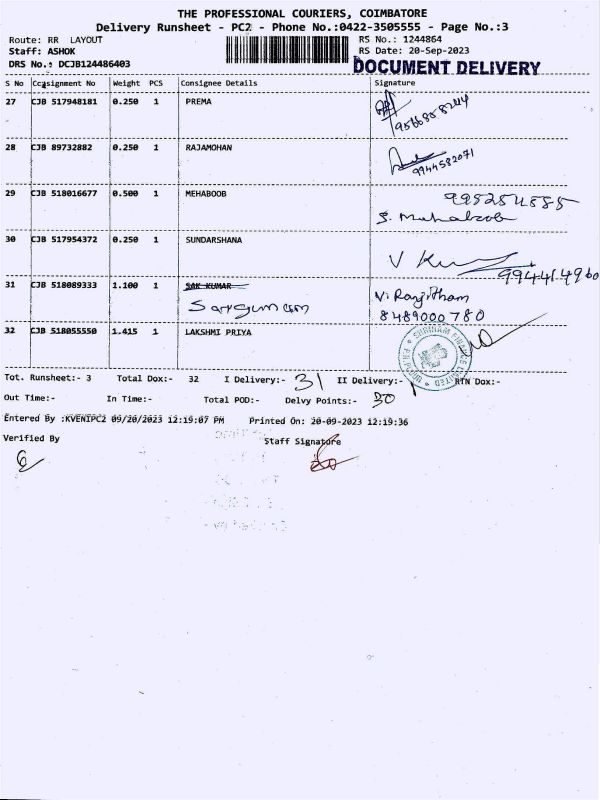 THE PROFESSIONAL COURIERS, COIMBATORE
Delivery Runsheet - PC2 - Phone No.:0422-3505555 - Page No.:3
Route: RR LAYOUT RS No.: 1244864
Staff: ASHOK RS Date: 20-Sep-2023
DRS No.: DCJB124486403 DOCUMENT DELIVERY
S No Consignment No Weight PCS Consignee Details Signature
27 CJB 517948181 0.250 1 PREMA
28 CJB 89732882 0.250 1 RAJAMOHAN 9944582071
29 CJB 518016677 0.500 1 MEHABOOB
S. Mehaboob
30 CJB 517954372 0.250 1 SUNDARSHANA
31 CJB 518089333 1.100 1 SAK KUMAR V. Ranjitham
8489000780
32 CJB 518055550 1.415 1 LAKSHMI PRIYA
SHRIRAM FINANCE LIMITED
Tot. Runsheet:- 3 Total Dox:- 32 I Delivery:- 31 II Delivery:- RTN Dox:-
Out Time:- In Time:- Total POD:- Delvy Points:- 30
Entered By :KVENIPC2 09/20/2023 12:19:07 PM Printed On: 20-09-2023 12:19:36
Verified By Staff Signature